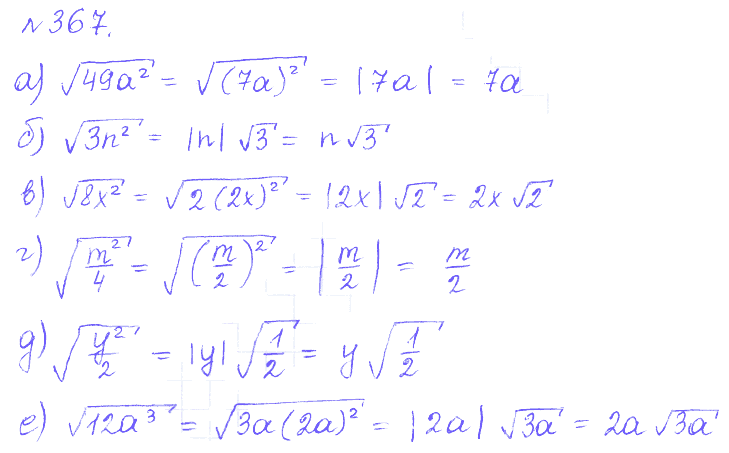 №367.
а) √(49a²) = √((7a)²) = |7a| = 7a
б) √(3n²) = |n| √3 = n √3
в) √(8x²) = √(2(2x)²) = |2x| √2 = 2x √2
г) √(m²/4) = √((m/2)²) = |m/2| = m/2
д) √(y²/2) = |y| √(1/2) = y √(1/2)
е) √(12a³) = √(3a(2a)²) = |2a| √(3a) = 2a √(3a)